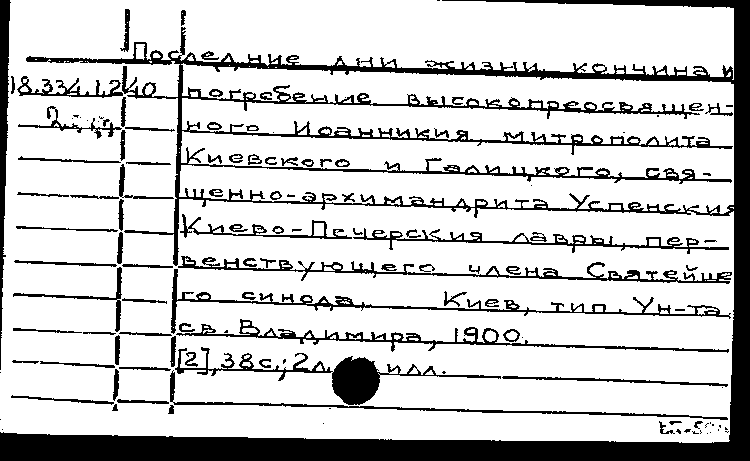 Последние дни жизни, кончина и
18.334.1.240 погребение высокопреосвящен-
ного Иоанникия, митрополита
Киевского и Галицкого, свя-
щенно-архимандрита Успенския
Киево-Печерския лавры, пер-
венствующего члена Святейше
го синода. Киев, тип. Ун-та
св. Владимира, 1900.
[2], 38 с.; 2 л. илл.